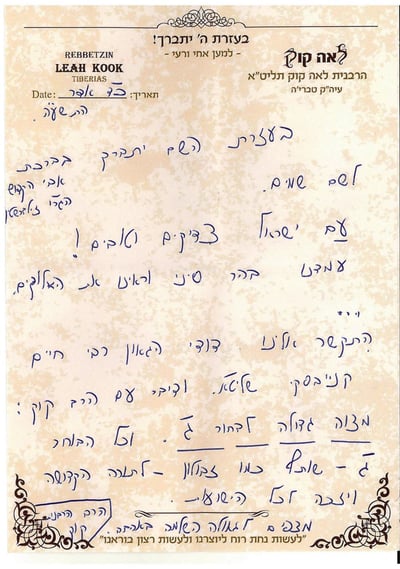 בעזרת ה' יתברך!
- למען אחי ורעי -
לאה קוק
הרבנית לאה קוק תליט"א
עיה"ק טבריה
REBBETZIN
LEAH KOOK
TIBERIAS
Date: כד אדר תאריך:
התשע"ה
בעזרת השם יתברך בברכת
אבי הקדוש
לשם שמים.
עם ישראל צדיקים וטובים!
עמדנו בהר סיני וראינו את האלוקים.
התקשר אלינו דודי הגאון רבי חיים
קנייבסקי שליטא. ודיבר עם הרב קוק:
מצוה גדולה לבחור ג. וכל הבוחר
ג - שותף כמו זבולון - לתורה הקדושה
ויזכה לכל הישועות.
מצפים לגאולה השלמה באהבה.
הרב והרבנית
קוק
"לעשות נחת רוח ליוצרנו ולעשות רצון בוראנו"